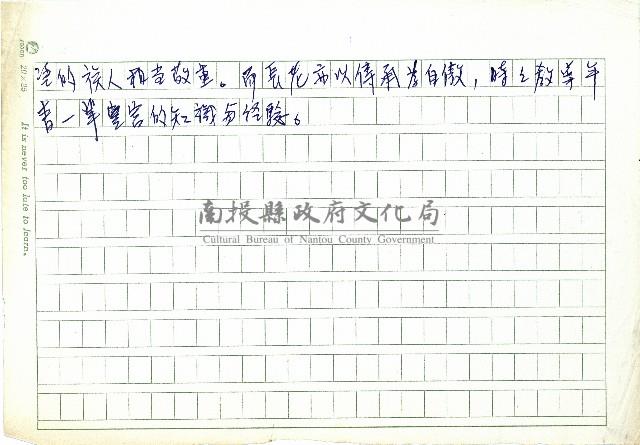 的族人相當敬重。而長老亦以傳承為自傲，時之教導年
青一輩豐富的知識與經驗。
南投縣政府文化局
Cultural Bureau of Nantou County Government
20×25
It is never too late to learn.